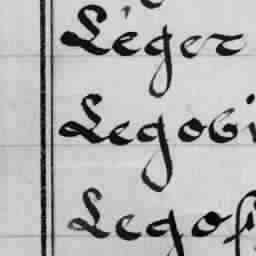 Léger
Legobi
Legof